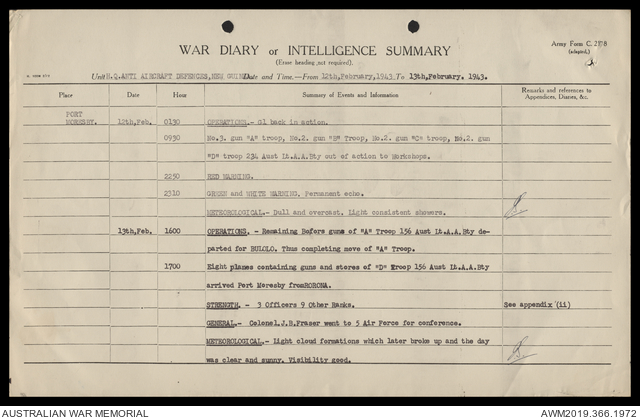 WAR DIARY or INTELLIGENCE SUMMARY
(Erase heading not required).
Army Form C. 2118
(adapted.)
Unit H.Q. ANTI AIRCRAFT DEFENCES, NEW GUINEA Date and Time.—From 12th, February, 1943. To 13th, February. 1943.
Place Date Hour Summary of Events and Information Remarks and references to
Appendices, Diaries, &c.
PORT
MORESBY. 12th, Feb. 0130 OPERATIONS.- G1 back in action.
0930 No.3. gun "A" troop, No.2. gun "B" Troop, No.2. gun "C" troop, No.2. gun
"D" troop 234 Aust Lt.A.A.Bty out of action to Workshops.
2250 RED WARNING.
2310 GREEN and WHITE WARNING. Permanent echo.
METEOROLOGICAL.- Dull and overcast. Light consistent showers.
13th, Feb. 1600 OPERATIONS. - Remaining Bofors guns of "A" Troop 156 Aust Lt.A.A.Bty de-
parted for BULOLO. Thus completing move of "A" Troop.
1700 Eight planes containing guns and stores of "D" Troop 156 Aust Lt.A.A.Bty
arrived Port Moresby fromRORONA.
STRENGTH.- 3 Officers 9 Other Ranks. See appendix (ii)
GENERAL.- Colonel.J.B.Fraser went to 5 Air Force for conference.
METEOROLOGICAL.- Light cloud formations which later broke up and the day
was clear and sunny. Visibility good.
AUSTRALIAN WAR MEMORIAL AWM2019.366.1972